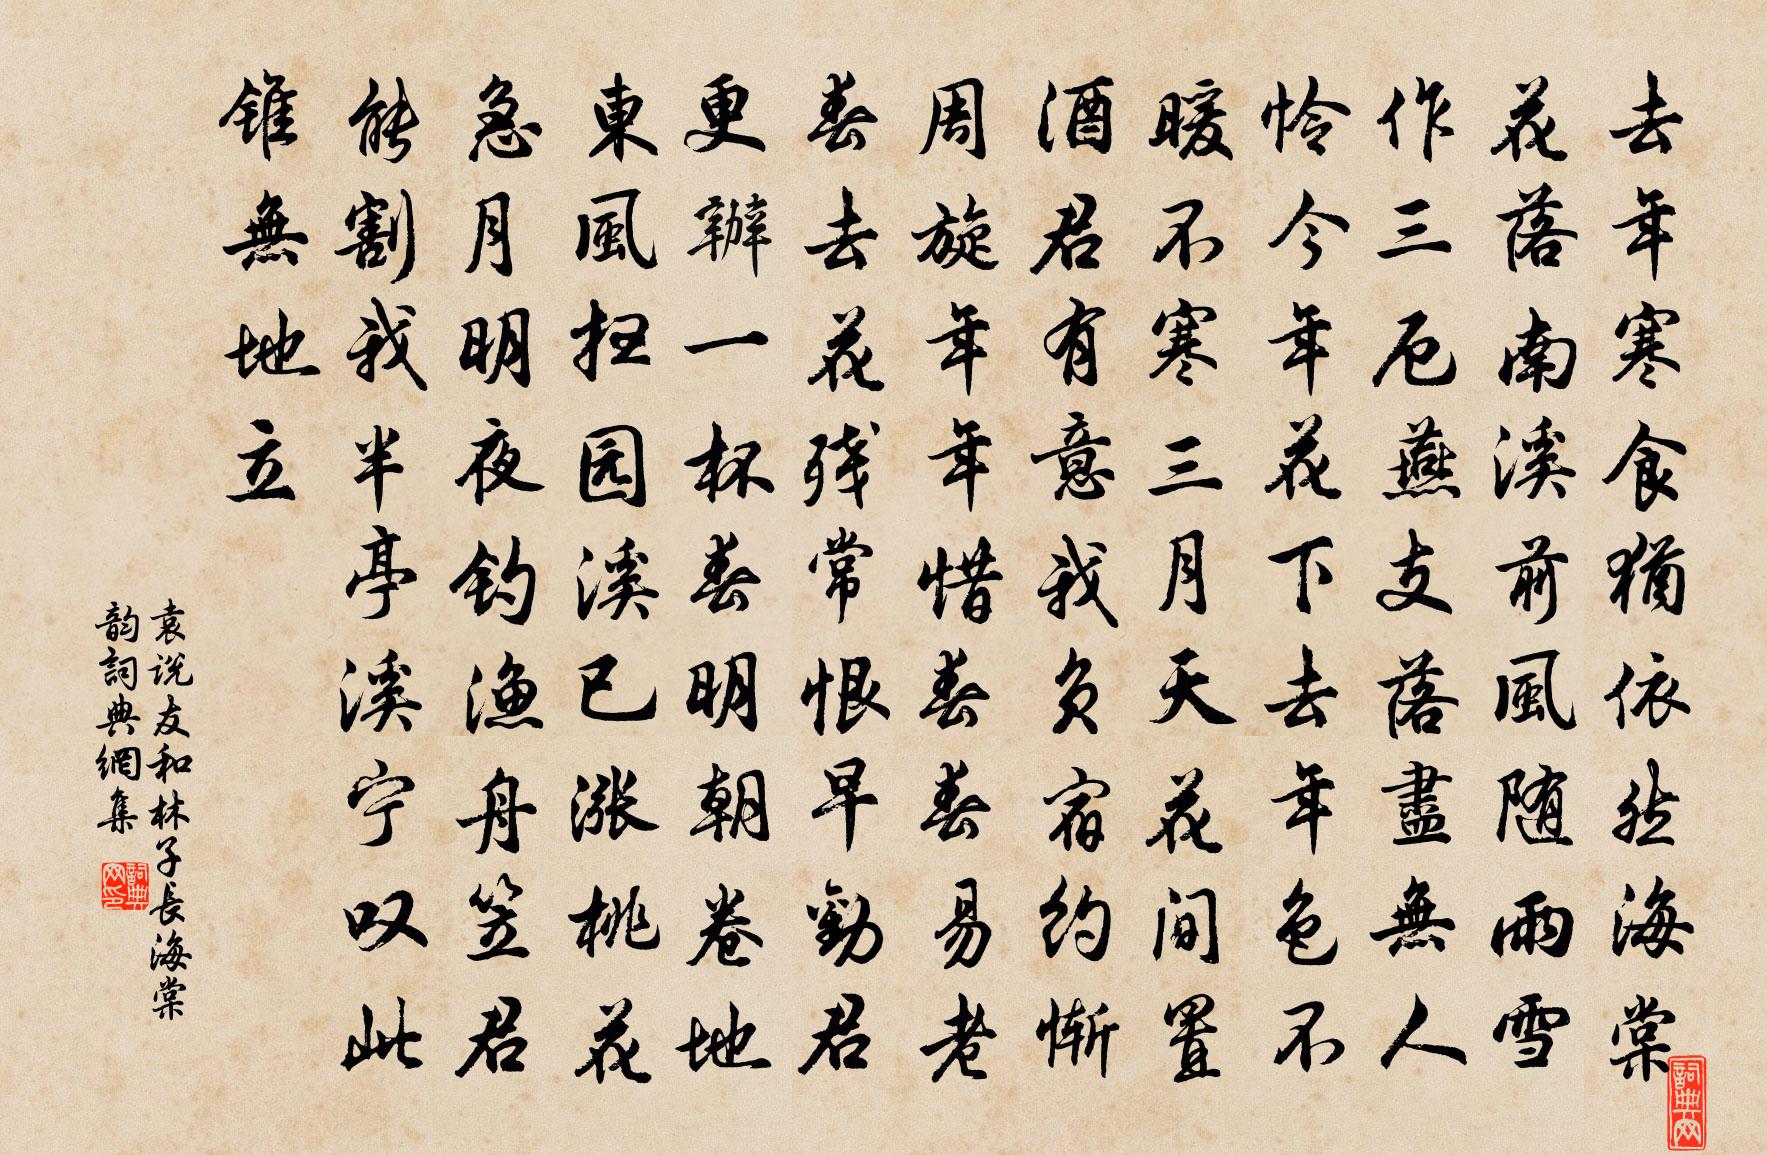 去年寒食犹依然海棠
花落南溪前風随雨雪
作三卮燕支落盡無人
怜今年花下去年色不
暖不寒三月天花间置
酒君有意我负宿约惭
周旋年年惜春春易老
春去花残常恨早勸君
更辦一杯春明朝卷地
東風扫园溪已漲桃花
急月明夜钓渔舟笠君
能割我半亭溪宁叹此
锥無地立
袁说友和林子長海棠
韵詞典網集
詞典网
詞典网印